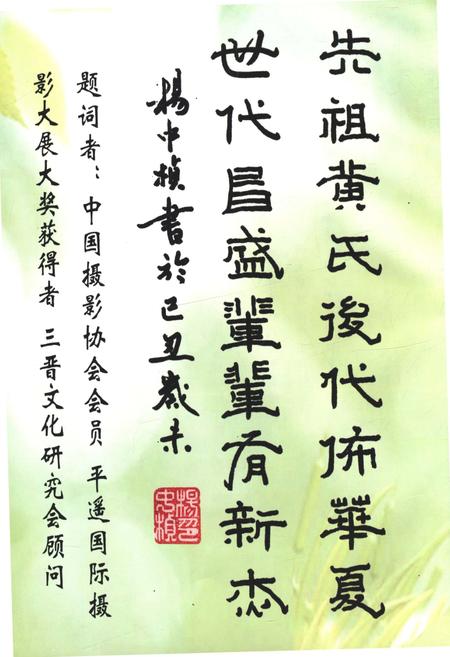 先祖黄氏後代佈華夏
世代昌盛輩輩有新杰
楊中楨書於己丑歲末
题词者：中国摄影协会会员 平遥国际摄
影大展大奖获得者 三晋文化研究会顾问